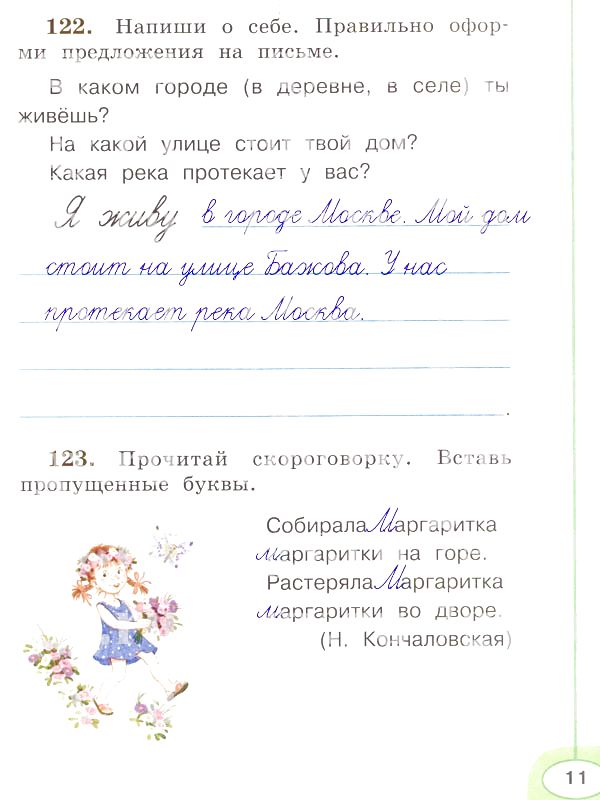 122. Напиши о себе. Правильно офор-
ми предложения на письме.
В каком городе (в деревне, в селе) ты
живёшь?
На какой улице стоит твой дом?
Какая река протекает у вас?
Я живу в городе Москве. Мой дом
стоит на улице Бажова. У нас
протекает река Москва.
.
123. Прочитай скороговорку. Вставь
пропущенные буквы.
Собирала Маргаритка
маргаритки на горе.
Растеряла Маргаритка
маргаритки во дворе.
(Н. Кончаловская)
11